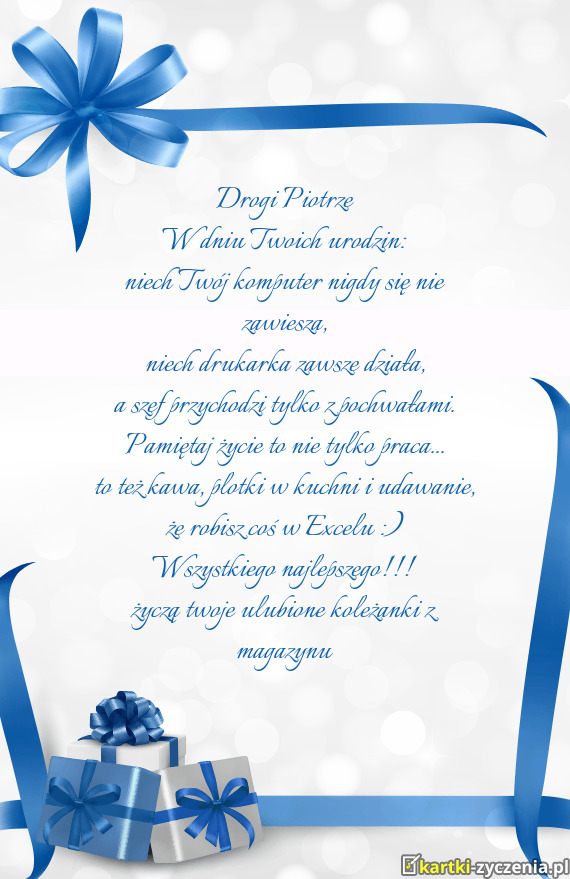 Drogi Piotrze
W dniu Twoich urodzin:
niech Twój komputer nigdy się nie
zawiesza,
niech drukarka zawsze działa,
a szef przychodzi tylko z pochwałami.
Pamiętaj życie to nie tylko praca...
to też kawa, plotki w kuchni i udawanie,
że robisz coś w Excelu :)
Wszystkiego najlepszego!!!
życzą twoje ulubione koleżanki z
magazynu
kartki-zyczenia.pl